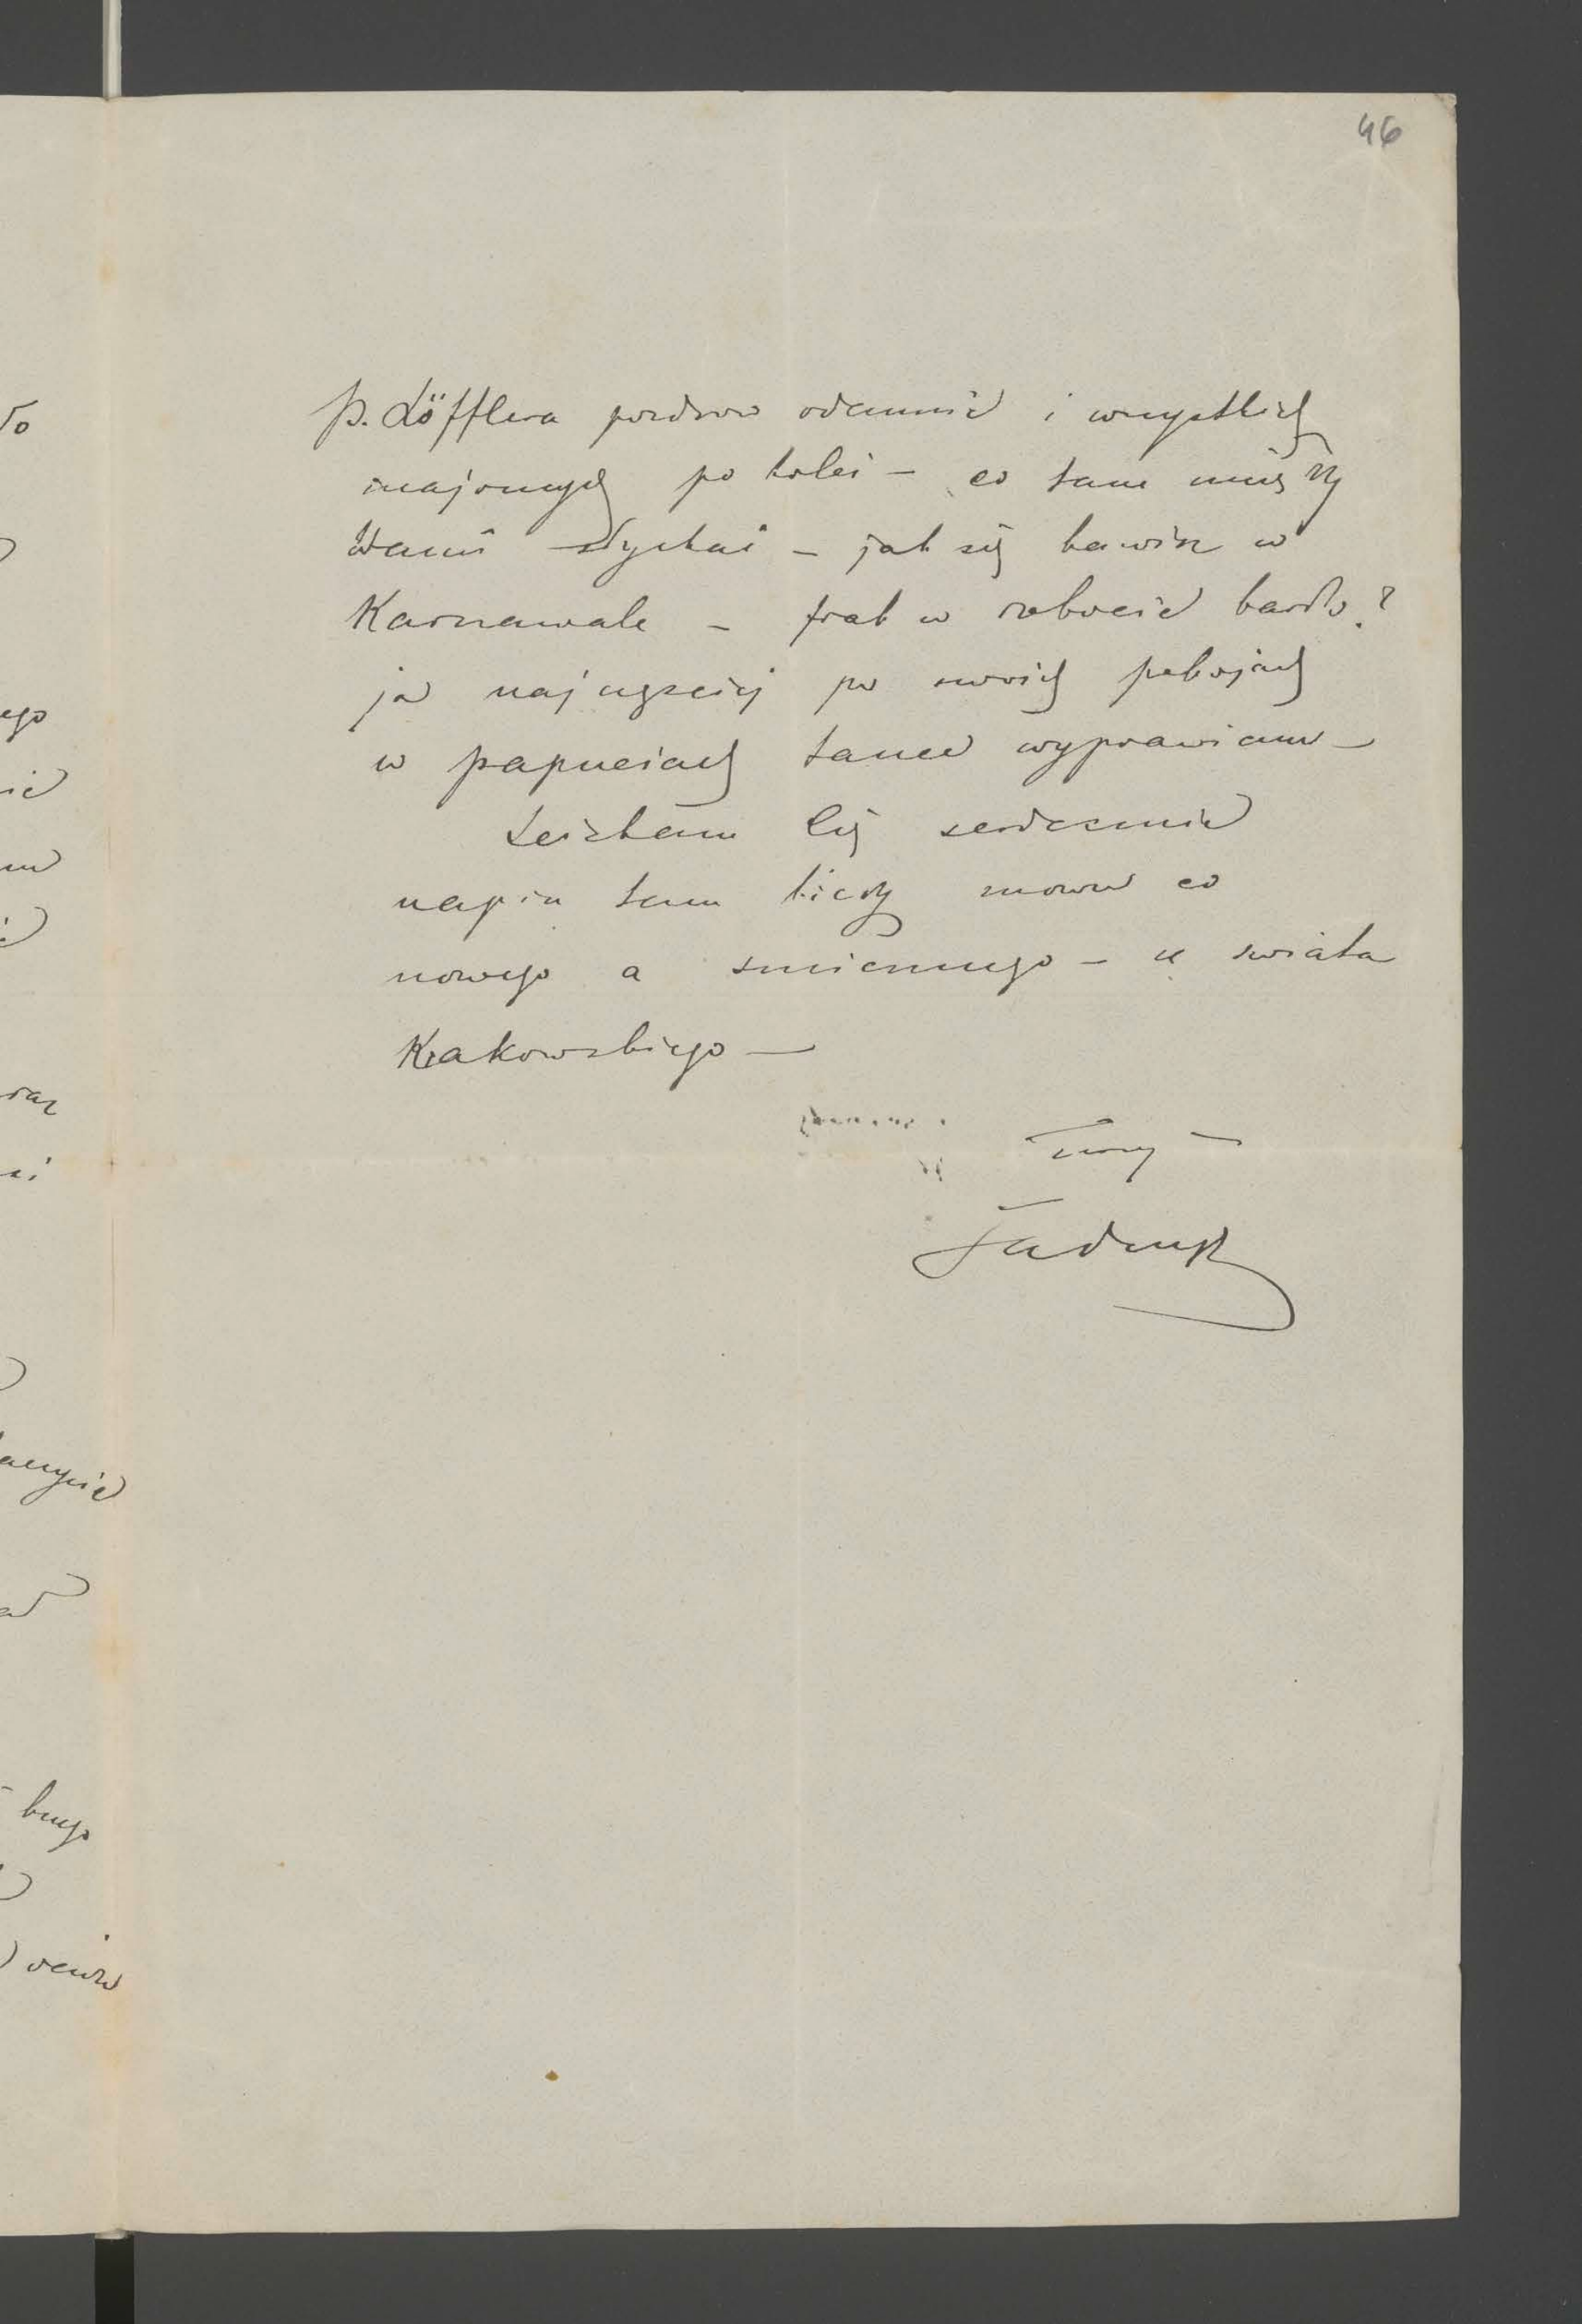 46
P. Löfflera pozdrow odemnie i wszystkich
znajomych po kolei – co tam między
Wami słychać – jak się bawisz w
Karnawale – frak w robocie bardzo?
ja najczęściej po swoich pokojach
w papuciach tance wyprawiam –
Ściskam Cię serdecznie
napisz tam kiedy znowu co
nowego a smiesznego – z swiata
Krakowskiego –
Twoj
Tadeusz